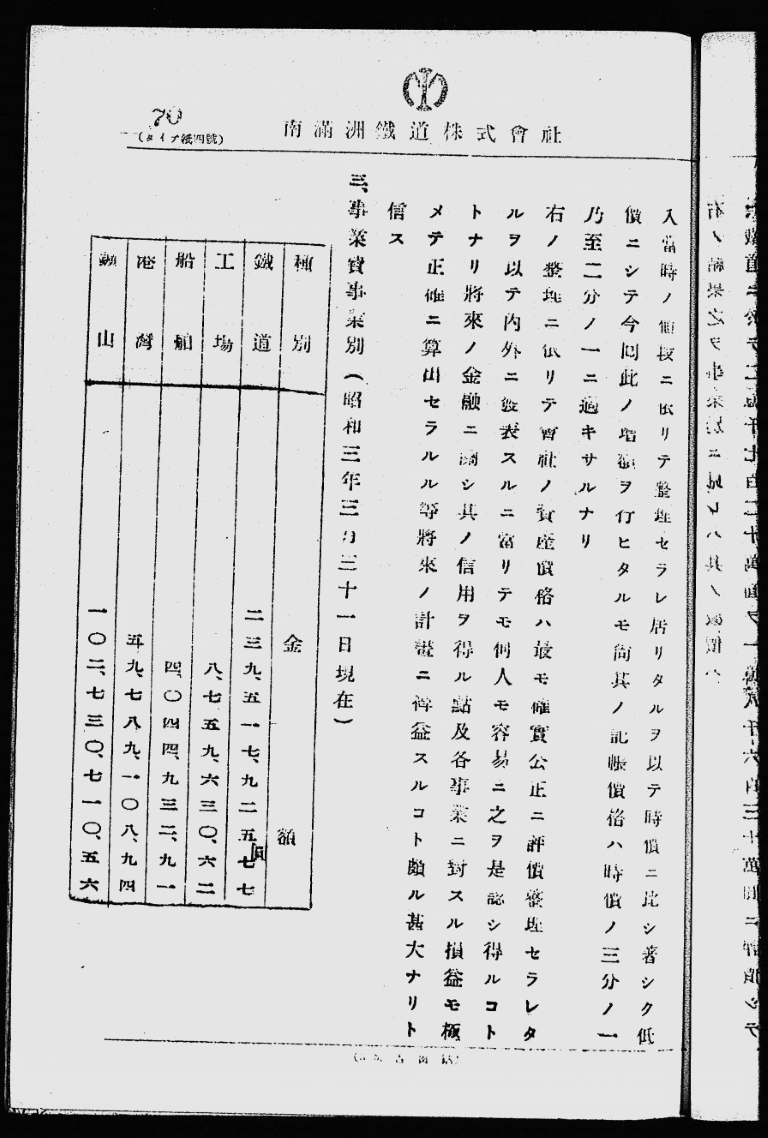 70
(タイプ紙四號)
南滿洲鐵道株式會社
入當時ノ値段ニ依リテ整理セラレ居リタルヲ以テ時價ニ比シ著シク低
價ニシテ今囘此ノ增額ヲ行ヒタルモ尙其ノ記帳價格ハ時價ノ三分ノ一
乃至二分ノ一ニ過キサルナリ
右ノ整理ニ依リテ會社ノ資產價格ハ最モ確實公正ニ評價整理セラレタ
ルヲ以テ內外ニ發表スルニ當リテモ何人モ容易ニ之ヲ是認シ得ルコト
トナリ將來ノ金融ニ關シ其ノ信用ヲ得ル點及各事業ニ對スル損益モ極
メテ正確ニ算出セラルル等將來ノ計畫ニ裨益スルコト頗ル甚大ナリト
信ス
三、事業費事業別(昭和三年三月三十一日現在)
種別 金額
鐵道 二三九、五一七、九二五七七 圓
工場 八、七五九、六三〇、六二
船舶 四、〇四四、九三二、九一
港灣 五九、七八九、一〇八、九四
鑛山 一〇二、七三〇、七一〇、五六